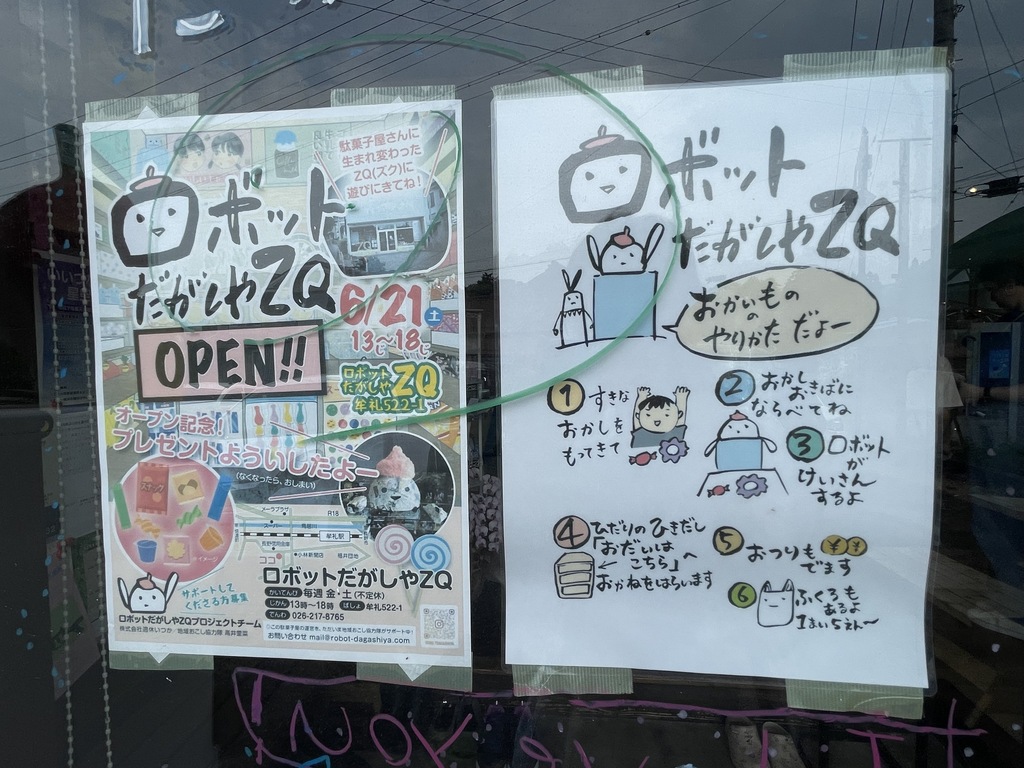 駄菓子屋さんに
生まれ変わった
ZQ(ズク)に
遊びにきてね!
ロボット
だがしやZQ
6/21土
13じ〜18じ
OPEN!!
ロボット
だがしやZQ
牟礼522-1
オープン記念!
プレゼントよういしたよー
(なくなったら、おしまい)
スナック
イメージ
メーラプラザ
R18
スーパー
鳥居川
牟礼駅
長野信用金庫
小林新聞店
福井団地
ココ
ロボットだがしやZQ
かいてんび 毎週 金・土(不定休)
じかん 13時〜18時 ばしょ 牟礼522-1
でんわ 026-217-8765
サポートして
くださる方募集
ロボットだがしやZQプロジェクトチーム
お問い合わせ mail@robot-dagashiya.com
ロボット
だがしやZQ
おかいもの
の
やりかた だよー
1 すきな
おかしを
もってきて
2 おかし おさばに
ならべてね
3 ロボット
が
けいさん
するよ
4 ひだりの ひきだし
「おだいは
こちら」へ
おかねをはらいます
5 おつりも ¥¥
でます
6 ふくろも
あるよ
1まい5えん〜